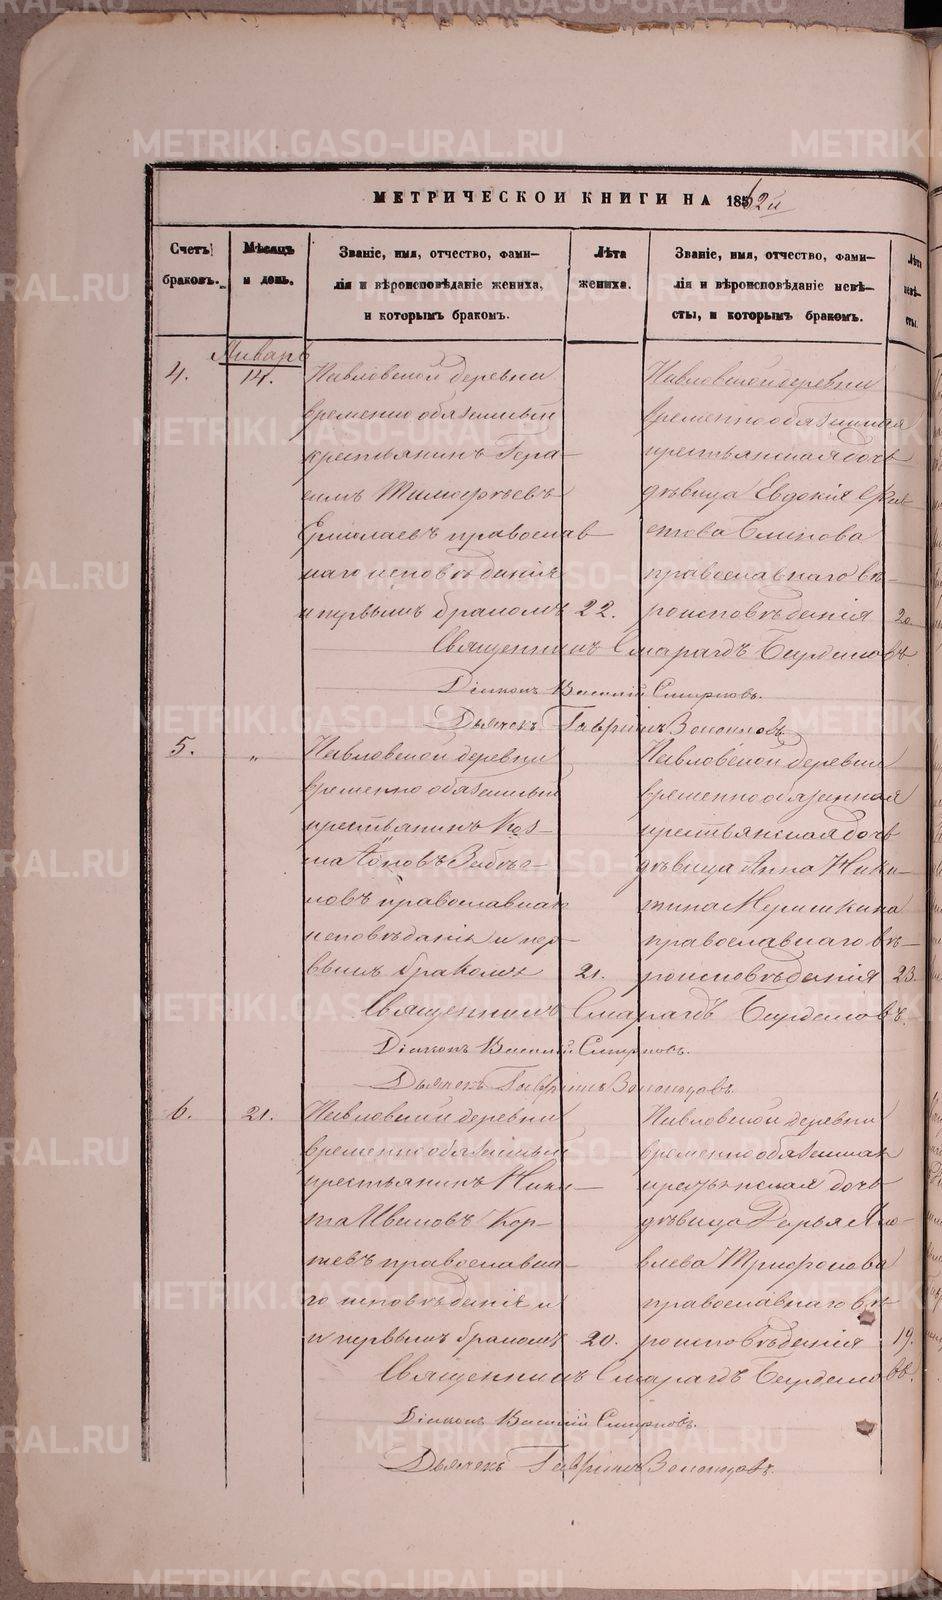 МЕТРИЧЕСКОЙ КНИГИ НА 1862й
Счетъ браковъ.
Мѣсяцъ и день.
Званіе, имя, отчество, фами-
лія и вѣроисповѣданіе жениха,
и которымъ бракомъ.
Лѣта жениха.
Званіе, имя, отчество, фами-
лія и вѣроисповѣданіе невѣ-
сты, и которымъ бракомъ.
Лѣта невѣ-
сты.
Январь
4.
14.
Павловской деревни
временно обязанный
крестьянинъ Гера-
симъ Тимофѣевъ
Ермолаевъ православ
наго исповѣданія
и первымъ бракомъ
22.
Павловской деревни
временно обязанная
крестьянская дочь
дѣвица Евдокія
Блинова
православнаго вѣ-
роисповѣданія
20.
Священникъ Смарагдъ
Діаконъ Василій Смирновъ.
Дьячекъ Гавріилъ
5.
"
Павловской деревни
временно обязанный
крестьянинъ Коз-
ма
православнаго
исповѣданія и пер-
вымъ бракомъ
21.
Павловской деревни
временно обязанная
крестьянская дочь
дѣвица Анна Ники-
тина
православнаго вѣ-
роисповѣданія
23.
Священникъ Смарагдъ
Діаконъ Василій Смирновъ.
Дьячекъ Гавріилъ
6.
21.
Павловской деревни
временно обязанный
крестьянинъ Ники-
та Ивановъ Кор-
невъ православна-
го исповѣданія и
и первымъ бракомъ
20.
Павловской деревни
временно обязанная
крестьянская дочь
дѣвица Дарья Яко-
влева Трифонова
православнаго вѣ-
роисповѣданія
19.
Священникъ Смарагдъ
Діаконъ Василій Смирновъ.
Дьячекъ Гавріилъ
METRIKI.GASO-URAL.RU